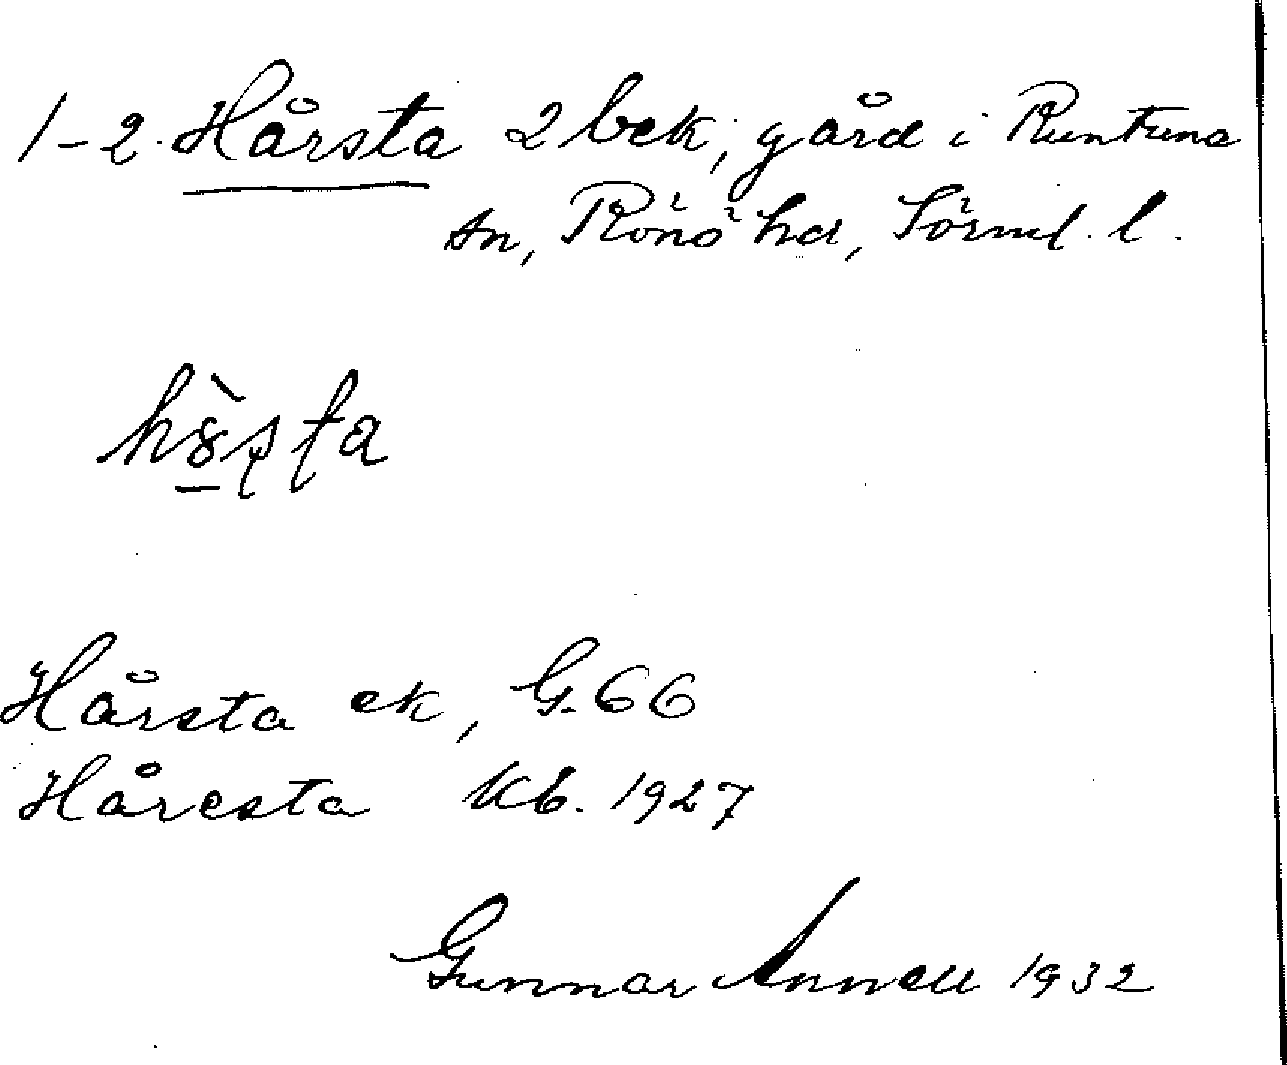 1-2. Hårsta 2 bek, gård i Runtuna
sn, Rönö hd, Sörml. l.
Hårsta ek, G. 66
Håresta kb. 1927
Gunnar Annell 1932